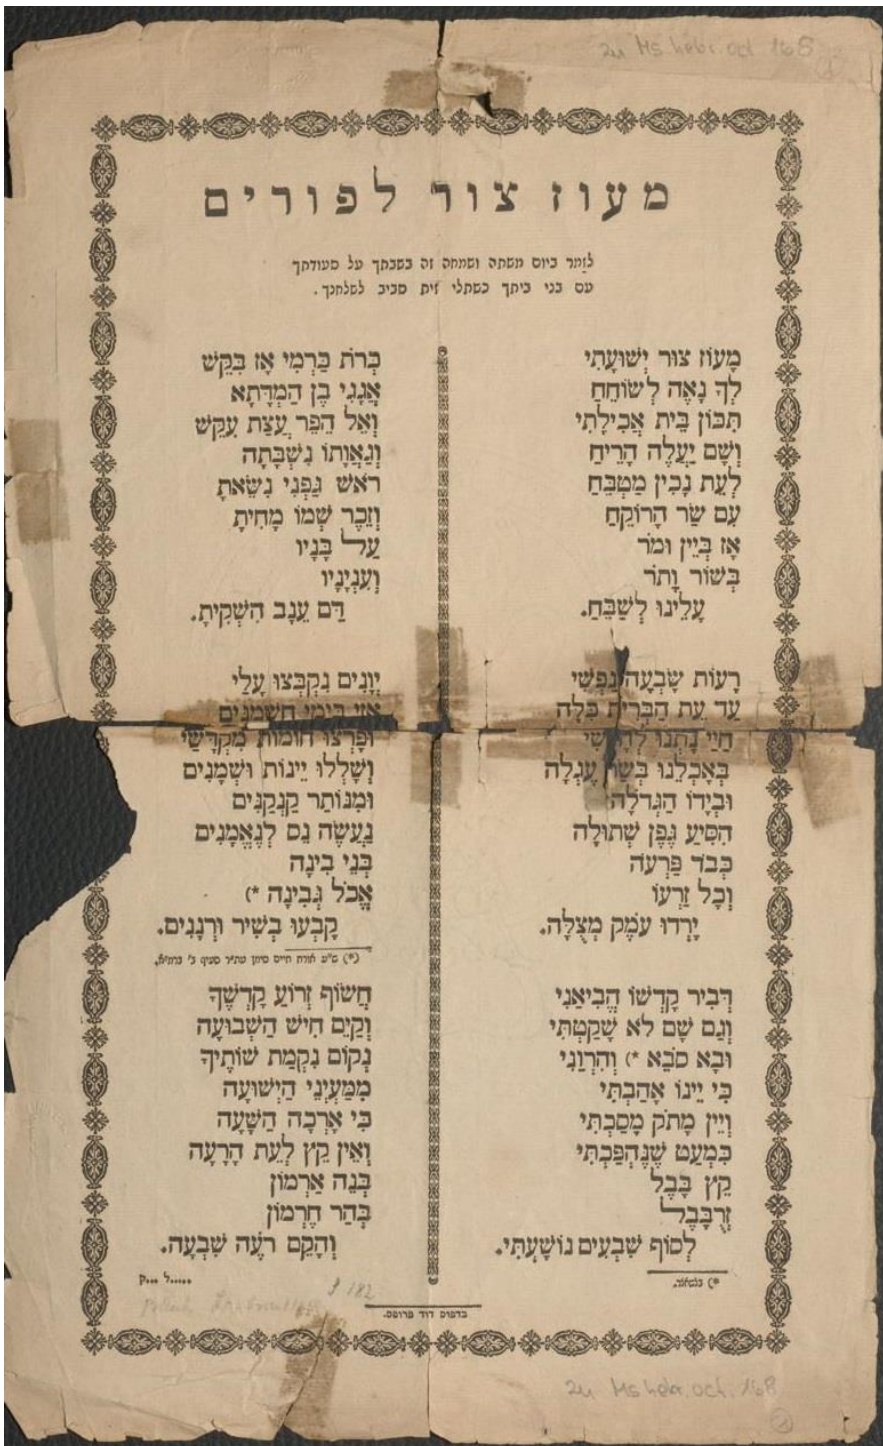 zu Ms hebr. oct 168
מעוז צור לפורים
לזמר ביום משתה ושמחה זה בשבתך על סעודתך
עם בני ביתך כשתלי זית סביב לשלחנך.
מָעוֹז צוּר יְשׁוּעָתִי
לְךָ נָאֶה לְשׂוֹחֵחַ
תִּכּוֹן בֵּית אֲכִילָתִי
וְשָׁם יַעֲלֶה הָרֵיחַ
לְעֵת נָכִין מַטְבֵּחַ
עִם שַׂר הָרוֹקֵחַ
אָז בְּיֵין וּמֹר
בְּשׁוֹר וָתֹר
עָלֵינוּ לְשַׁבֵּחַ.
רָעוֹת שָׂבְעָה נַפְשִׁי
עַד עֵת הַבְּרִית כַּלָּה
חַיַּי נָתְנוּ
בְּאָכְלֵנוּ בְּשַׂר עֶגְלָה
וּבְיָדוֹ הַגְּדֹלָה
הִסִּיעַ גֶּפֶן שְׁתוּלָה
כְּבֹד פַּרְעֹה
וְכָל זַרְעוֹ
יָרְדוּ עֹמֶק מְצֻלָה.
דְּבִיר קָדְשׁוֹ הֱבִיאַנִי
וְגַם שָׁם לֹא שָׁקַטְתִּי
וּבָא סֹבֵא *) וְהִרְוַנִי
כִּי יֵינוֹ אָהַבְתִּי
וְיֵין מָתֹק מָסַכְתִּי
כִּמְעַט שֶׁנֶּהְפַּכְתִּי
קֵץ בָּבֶל
זְרֻבָּבֶל
לְסוֹף שִׁבְעִים נוֹשַׁעְתִּי.
*) בלשאצר.
כְּרֹת כַּרְמִי אָז בִּקֵּשׁ
אֲגָגִי בֶּן הַמְּדָתָא
וְאֵל הֵפֵר עֲצַת עִקֵּשׁ
וְגַאֲוָתוֹ נִשְׁבָּתָה
רֹאשׁ גַּפְנִי נִשֵּׂאתָ
וְזֵכֶר שְׁמוֹ מָחִיתָ
עַל בָּנָיו
וְעִנְיָנָיו
דַּם עֵנָב הִשְׁקִיתָ.
יְוָנִים נִקְבְּצוּ עָלַי
אֲזַי בִּימֵי חַשְׁמַנִּים
וּפָרְצוּ חוֹמוֹת מִקְדָּשַׁי
וְשָׁלְלוּ יֵינוֹת וּשְׁמָנִים
וּמִנּוֹתַר קַנְקַנִּים
נַעֲשָׂה נֵס לְנֶאֱמָנִים
בְּנֵי בִינָה
אֱכֹל גְּבִינָה *)
קָבְעוּ בְּשִׁיר וּרְנָנִים.
(*) ש״ע אורח חיים סימן עת״ר סעיף ב׳ בהג״ה.
חֲשׂוֹף זְרוֹעַ קָדְשֶׁךָ
וְקַיֵּם חִישׁ הַשְּׁבוּעָה
נְקוֹם נִקְמַת שׁוֹתֶיךָ
מִמַּעְיְנֵי הַיְשׁוּעָה
כִּי אָרְכָה הַשָּׁעָה
וְאֵין קֵץ לְעֵת הָרָעָה
בְּנֵה אַרְמוֹן
בְּהַר חֶרְמוֹן
וְהָקֵם רֹעֶה שִׁבְעָה.
ל..... ק...
182
בדפוס דוד פרופס.
zu Ms hebr. oct. 168